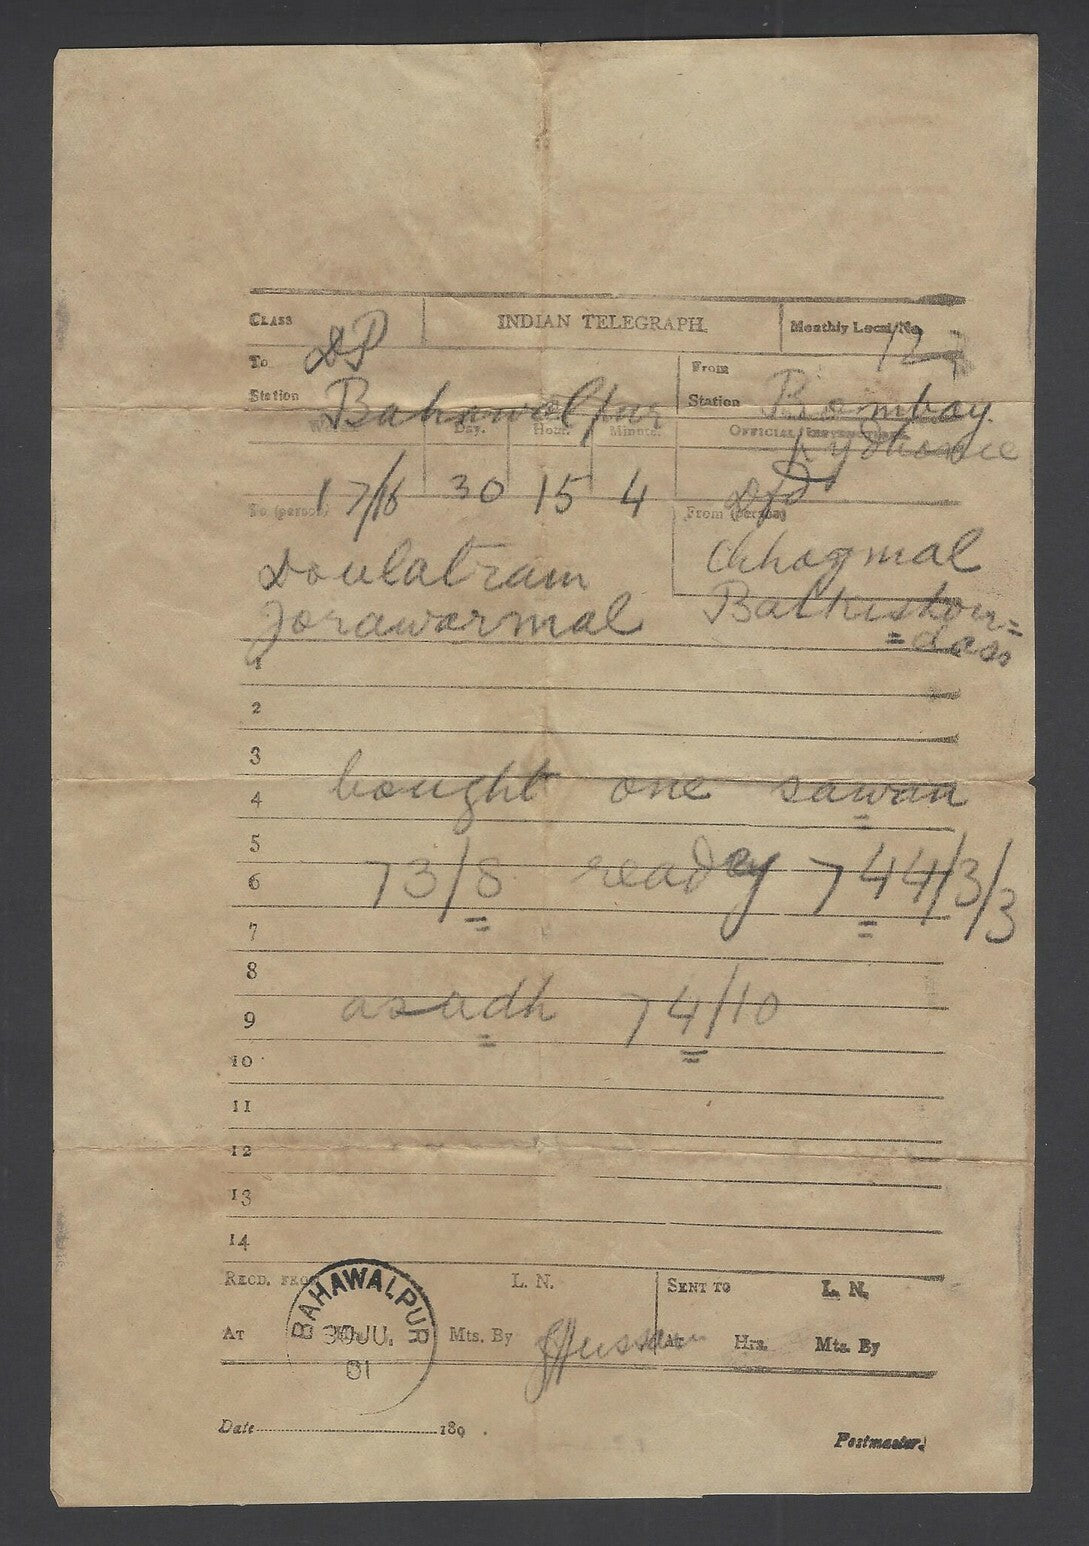 CLASS DP INDIAN TELEGRAPH. Monthly Local No.
To From
Station Bahawalpur Station Bombay
Day. Hour. Minute. OFFICIAL
17/16 30 15 4
To (person) From (person)
Doulatram Chhogmal
Jorawarmal Balkishon=
=dass
1
2
3
bought one sawan
4
5
73/8 ready 744/3/3
6
7
8
asadh 74/10
9
10
11
12
13
14
RECD. FROM L. N. SENT TO L. N.
BAHAWALPUR
30 JU.
01
At Mts. By At Hrs. Mts. By
Date 189 .
Postmaster.